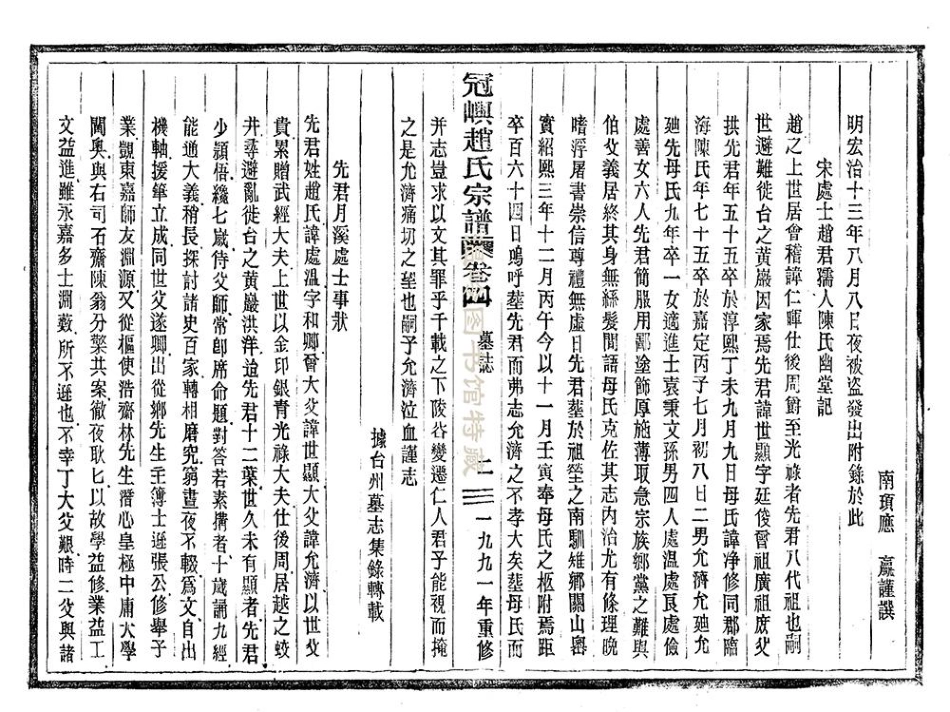 南頊應　嬴謹譔
明宏治十三年八月八日夜被盜發出附錄於此
宋處士趙君孺人陳氏幽堂記
趙之上世居會稽諱仁暉仕後周爵至光祿者先君八代祖也嗣
世避難徙台之黃巖因家焉先君諱世顯字廷俊曾祖廣祖庶父
拱先君年五十五卒於淳熙丁未九月九日母氏諱淨修同郡臨
海陳氏年七十五卒於嘉定丙子七月初八日二男允濟允廸允
廸先母氏九年卒一女適進士袁秉文孫男四人處溫處艮處儉
處善女六人先君簡服用鄙塗飾厚施薄取急宗族鄉黨之難與
伯父義居終其身無絲髮間語母氏克佐其志內治尤有條理晚
嗜浮屠書崇信尊禮無虛日先君葬於祖塋之南馴雉鄉關山嶴
實紹熙三年十二月丙午今以十一月壬寅奉母氏之柩附焉距
卒百六十四日嗚呼葬先君而弗志允濟之不孝大矣葬母氏而
冠嶼趙氏宗譜 卷四 墓誌 二 一九九一年重修
图书馆特藏
并志豈求以文其罪乎千載之下陵谷變遷仁人君子能視而掩
之是允濟痛切之至也嗣子允濟泣血謹志
據台州墓志集錄轉載
先君月溪處士事狀
先君姓趙氏諱處溫字和卿曾大父諱世顯大父諱允濟以世父
貴累贈武經大夫上世以金印銀青光祿大夫仕後周居越之蛟
井尋避亂徙台之黃巖洪洋迨先君十二葉世久未有顯者先君
少穎悟纔七歲侍父師常卽席命題對答若素搆者十歲誦九經
能通大義稍長探討諸史百家轉相磨究窮晝夜不輟爲文自出
機軸援筆立成同世父遂卿出從鄉先生主簿士遜張公修舉子
業覿東嘉師友淵源又從樞使浩齋林先生潛心皇極中庸大學
閫奧與右司石齋陳翁分檠共案徹夜耿耿以故學益修業益工
文益進雖永嘉多士淵藪所不遜也不幸丁大父艱時二父與諸